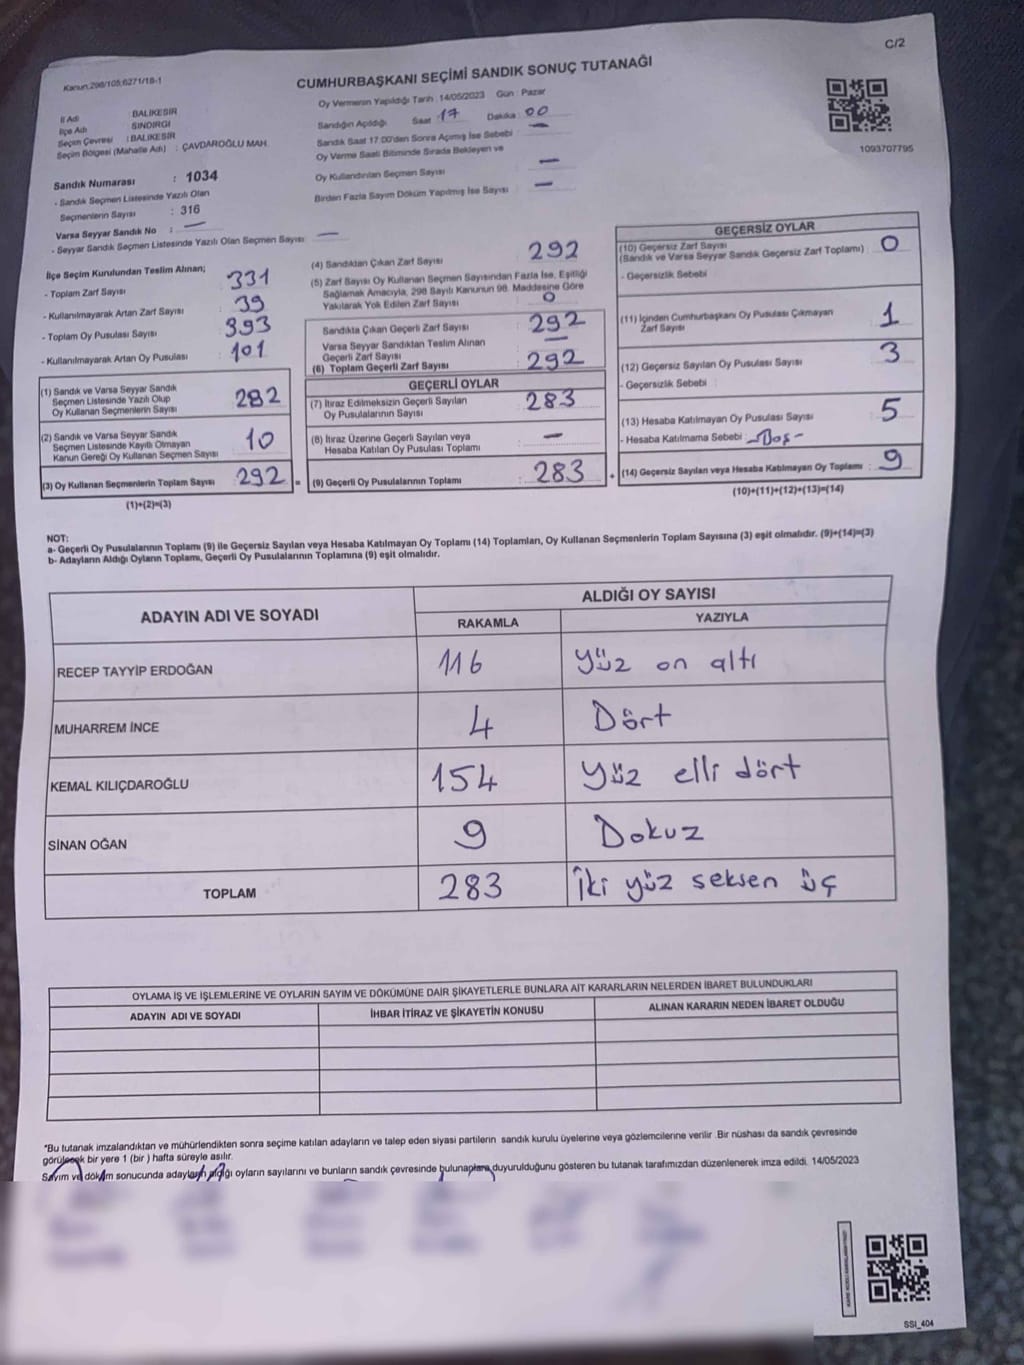 C/2
Kanun:298/105;6271/18-1
CUMHURBAŞKANI SEÇİMİ SANDIK SONUÇ TUTANAĞI
Oy Vermenin Yapıldığı Tarih :14/05/2023 Gün : Pazar
İl Adı : BALIKESİR
İlçe Adı : SINDIRGI
Seçim Çevresi : BALIKESİR
Seçim Bölgesi (Mahalle Adı) : ÇAVDAROĞLU MAH.
Sandığın Açıldığı Saat : 17 Dakika : 00
Sandık Saat 17.00'den Sonra Açılmış İse Sebebi : —
Oy Verme Saati Bitiminde Sırada Bekleyen ve
Oy Kullandırılan Seçmen Sayısı : —
Birden Fazla Sayım Döküm Yapılmış İse Sayısı : —
1093707795
Sandık Numarası : 1034
- Sandık Seçmen Listesinde Yazılı Olan
Seçmenlerin Sayısı : 316
Varsa Seyyar Sandık No : —
- Seyyar Sandık Seçmen Listesinde Yazılı Olan Seçmen Sayısı : —
İlçe Seçim Kurulundan Teslim Alınan;
- Toplam Zarf Sayısı : 331
- Kullanılmayarak Artan Zarf Sayısı : 39
- Toplam Oy Pusulası Sayısı : 393
- Kullanılmayarak Artan Oy Pusulası : 101
(1) Sandık ve Varsa Seyyar Sandık
Seçmen Listesinde Yazılı Olup
Oy Kullanan Seçmenlerin Sayısı : 282
(2) Sandık ve Varsa Seyyar Sandık
Seçmen Listesinde Kayıtlı Olmayan
Kanun Gereği Oy Kullanan Seçmen Sayısı : 10
(3) Oy Kullanan Seçmenlerin Toplam Sayısı : 292 =
(1)+(2)=(3)
(4) Sandıktan Çıkan Zarf Sayısı : 292
(5) Zarf Sayısı Oy Kullanan Seçmen Sayısından Fazla İse, Eşitliği
Sağlamak Amacıyla, 298 Sayılı Kanunun 98. Maddesine Göre
Yakılarak Yok Edilen Zarf Sayısı : 0
Sandıkta Çıkan Geçerli Zarf Sayısı : 292
Varsa Seyyar Sandıktan Teslim Alınan
Geçerli Zarf Sayısı : —
(6) Toplam Geçerli Zarf Sayısı : 292
GEÇERLİ OYLAR
(7) İtiraz Edilmeksizin Geçerli Sayılan
Oy Pusulalarının Sayısı : 283
(8) İtiraz Üzerine Geçerli Sayılan veya
Hesaba Katılan Oy Pusulası Toplamı : —
(9) Geçerli Oy Pusulalarının Toplamı : 283 +
GEÇERSİZ OYLAR
(10) Geçersiz Zarf Sayısı
(Sandık ve Varsa Seyyar Sandık Geçersiz Zarf Toplamı) : 0
- Geçersizlik Sebebi
(11) İçinden Cumhurbaşkanı Oy Pusulası Çıkmayan
Zarf Sayısı : 1
(12) Geçersiz Sayılan Oy Pusulası Sayısı : 3
- Geçersizlik Sebebi :
(13) Hesaba Katılmayan Oy Pusulası Sayısı : 5
- Hesaba Katılmama Sebebi : - Boş -
(14) Geçersiz Sayılan veya Hesaba Katılmayan Oy Toplamı : 9
(10)+(11)+(12)+(13)=(14)
NOT:
a- Geçerli Oy Pusulalarının Toplamı (9) ile Geçersiz Sayılan veya Hesaba Katılmayan Oy Toplamı (14) Toplamları, Oy Kullanan Seçmenlerin Toplam Sayısına (3) eşit olmalıdır. (9)+(14)=(3)
b- Adayların Aldığı Oyların Toplamı, Geçerli Oy Pusulalarının Toplamına (9) eşit olmalıdır.
ADAYIN ADI VE SOYADI ALDIĞI OY SAYISI
RAKAMLA YAZIYLA
RECEP TAYYİP ERDOĞAN 116 Yüz on altı
MUHARREM İNCE 4 Dört
KEMAL KILIÇDAROĞLU 154 Yüz elli dört
SİNAN OĞAN 9 Dokuz
TOPLAM 283 İki yüz seksen üç
OYLAMA İŞ VE İŞLEMLERİNE VE OYLARIN SAYIM VE DÖKÜMÜNE DAİR ŞİKAYETLERLE BUNLARA AİT KARARLARIN NELERDEN İBARET BULUNDUKLARI
ADAYIN ADI VE SOYADI İHBAR İTİRAZ VE ŞİKAYETİN KONUSU ALINAN KARARIN NEDEN İBARET OLDUĞU
*Bu tutanak imzalandıktan ve mühürlendikten sonra seçime katılan adayların ve talep eden siyasi partilerin sandık kurulu üyelerine veya gözlemcilerine verilir .Bir nüshası da sandık çevresinde
görülecek bir yere 1 (bir ) hafta süreyle asılır.
Sayım ve döküm sonucunda adayların aldığı oyların sayılarını ve bunların sandık çevresinde bulunanlara duyurulduğunu gösteren bu tutanak tarafımızdan düzenlenerek imza edildi. 14/05/2023
SSI_404